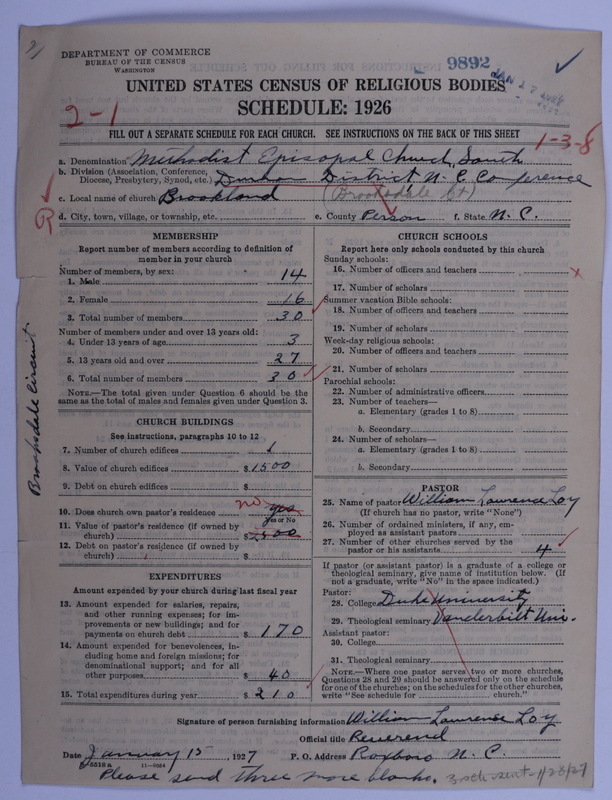 2)
DEPARTMENT OF COMMERCE
BUREAU OF THE CENSUS
WASHINGTON
9892
JAN 27
UNITED STATES CENSUS OF RELIGIOUS BODIES
SCHEDULE: 1926
2-1
FILL OUT A SEPARATE SCHEDULE FOR EACH CHURCH. SEE INSTRUCTIONS ON THE BACK OF THIS SHEET
1-3-8
a. Denomination Methodist Episcopal Church, South
b. Division (Association, Conference, Diocese, Presbytery, Synod, etc.) Durham District, N. C. Conference
c. Local name of church Brookland (Brooksdale Ct)
R
d. City, town, village, or township, etc. e. County Person f. State N. C.
Brooksdale Circuit
MEMBERSHIP
Report number of members according to definition of
member in your church
Number of members, by sex:
1. Male 14
2. Female 16
3. Total number of members 30
Number of members under and over 13 years old:
4. Under 13 years of age 3
5. 13 years old and over 27
6. Total number of members 30
NOTE.—The total given under Question 6 should be the
same as the total of males and females given under Question 3.
CHURCH BUILDINGS
See instructions, paragraphs 10 to 12
7. Number of church edifices 1
8. Value of church edifices $1500
9. Debt on church edifices $
10. Does church own pastor's residence no yes
Yes or No
11. Value of pastor's residence (if owned by
church) $2500
12. Debt on pastor's residence (if owned by
church) $
EXPENDITURES
Amount expended by your church during last fiscal year
13. Amount expended for salaries, repairs,
and other running expenses; for im-
provements or new buildings; and for
payments on church debt $170
14. Amount expended for benevolences, in-
cluding home and foreign missions; for
denominational support; and for all
other purposes $40
15. Total expenditures during year $210
CHURCH SCHOOLS
Report here only schools conducted by this church
Sunday schools:
16. Number of officers and teachers x
17. Number of scholars
Summer vacation Bible schools:
18. Number of officers and teachers
19. Number of scholars
Week-day religious schools:
20. Number of officers and teachers
21. Number of scholars
Parochial schools:
22. Number of administrative officers
23. Number of teachers—
a. Elementary (grades 1 to 8)
b. Secondary
24. Number of scholars—
a. Elementary (grades 1 to 8)
b. Secondary
PASTOR
25. Name of pastor William Lawrence Loy
(If church has no pastor, write "None")
26. Number of ordained ministers, if any, em-
ployed as assistant pastors
27. Number of other churches served by the
pastor or his assistants 4
If pastor (or assistant pastor) is a graduate of a college or
theological seminary, give name of institution below. (If
not a graduate, write "No" in the space indicated.)
Pastor:
28. College Duke University
29. Theological seminary Vanderbilt Uni.
Assistant pastor:
30. College
31. Theological seminary
NOTE.—Where one pastor serves two or more churches,
Questions 28 and 29 should be answered only on the schedule
for one of the churches; on the schedules for the other churches,
write "See schedule for church."
Signature of person furnishing information William Lawrence Loy
Official title Reverend
Date January 15, 1927 P. O. Address Roxboro N. C.
8518a 11—9084
Please send three more blanks. 3 sch. sent-1/28/27